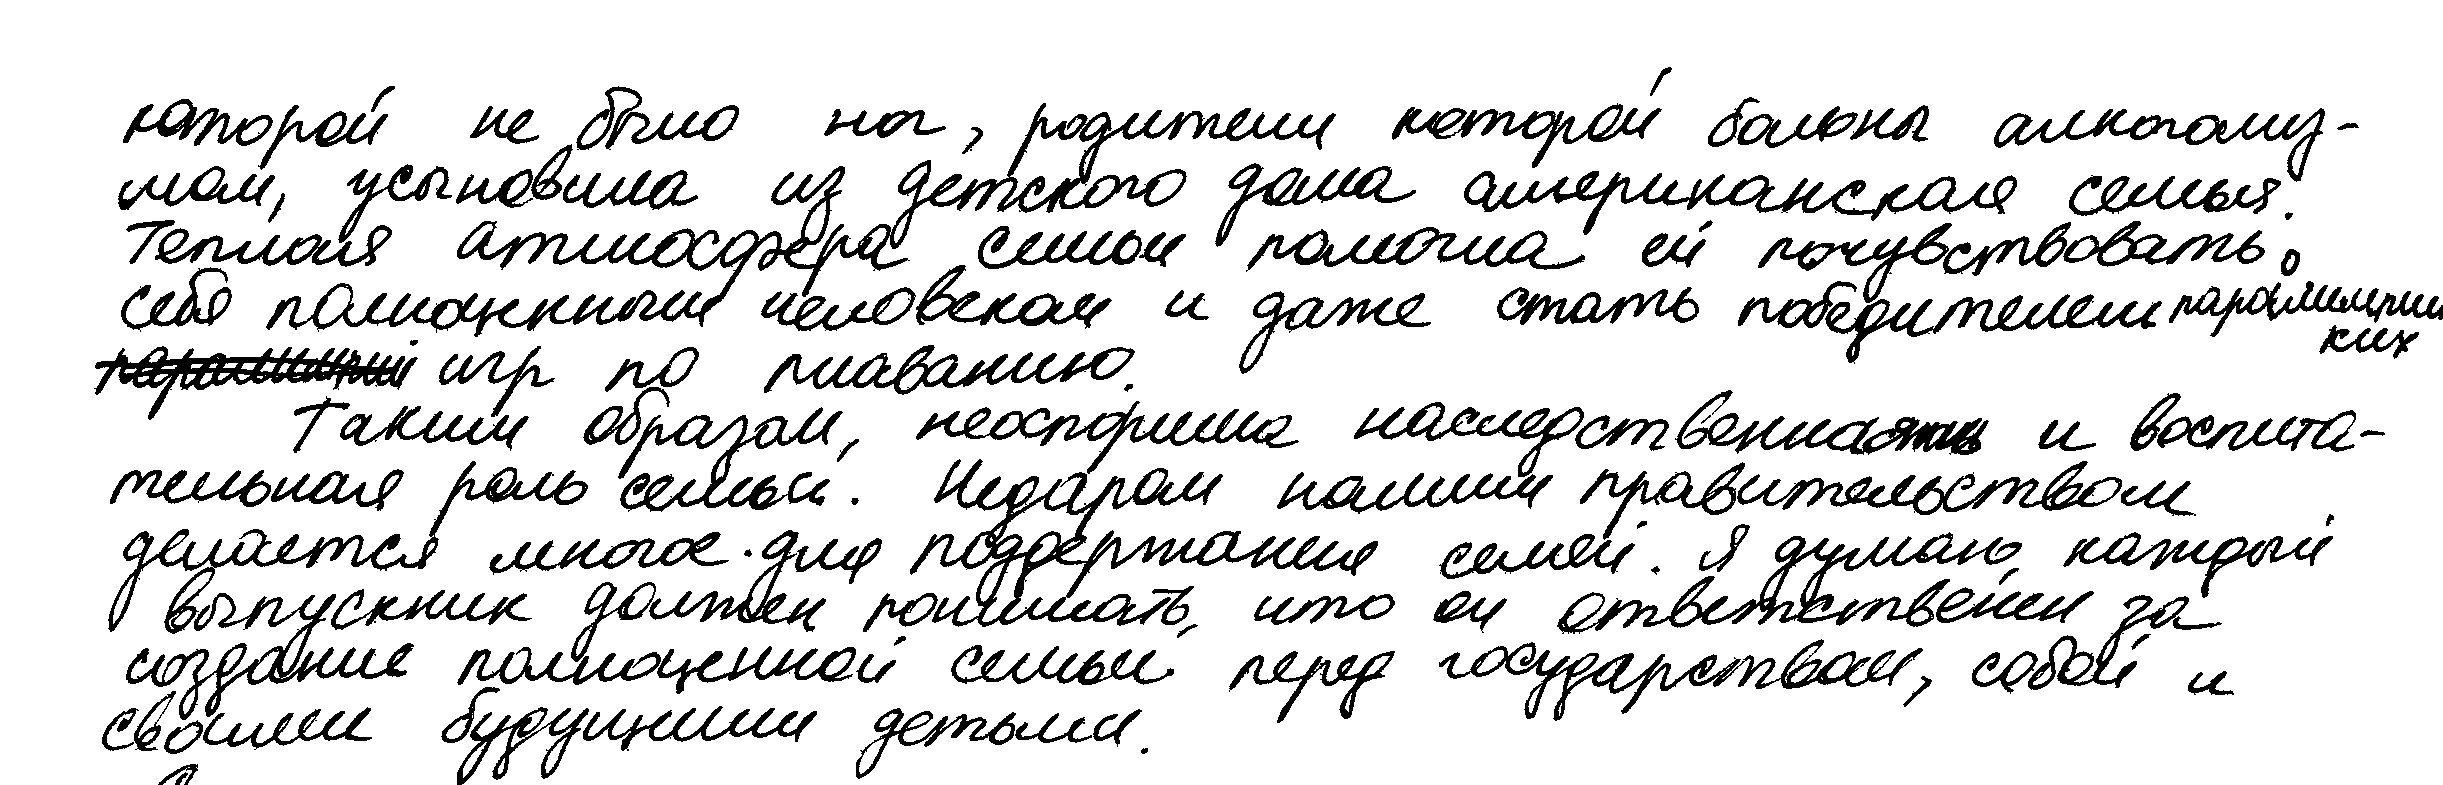 которой не было ног, родители которой больны алкоголиз-
мом, усыновила из детского дома американская семья.
Теплая атмосфера семьи помогла ей почувствовать
себя полноценным человеком и даже стать победителем паралимпий
ких
игр по плаванию.
Таким образом, неоспорима наследственность и воспита-
тельная роль семьи. Недаром нашим правительством
делается многое для поддержания семей. Я думаю, каждый
выпускник должен понимать, что он ответственен за
создание полноценной семьи перед государством, собой и
своими будущими детьми.